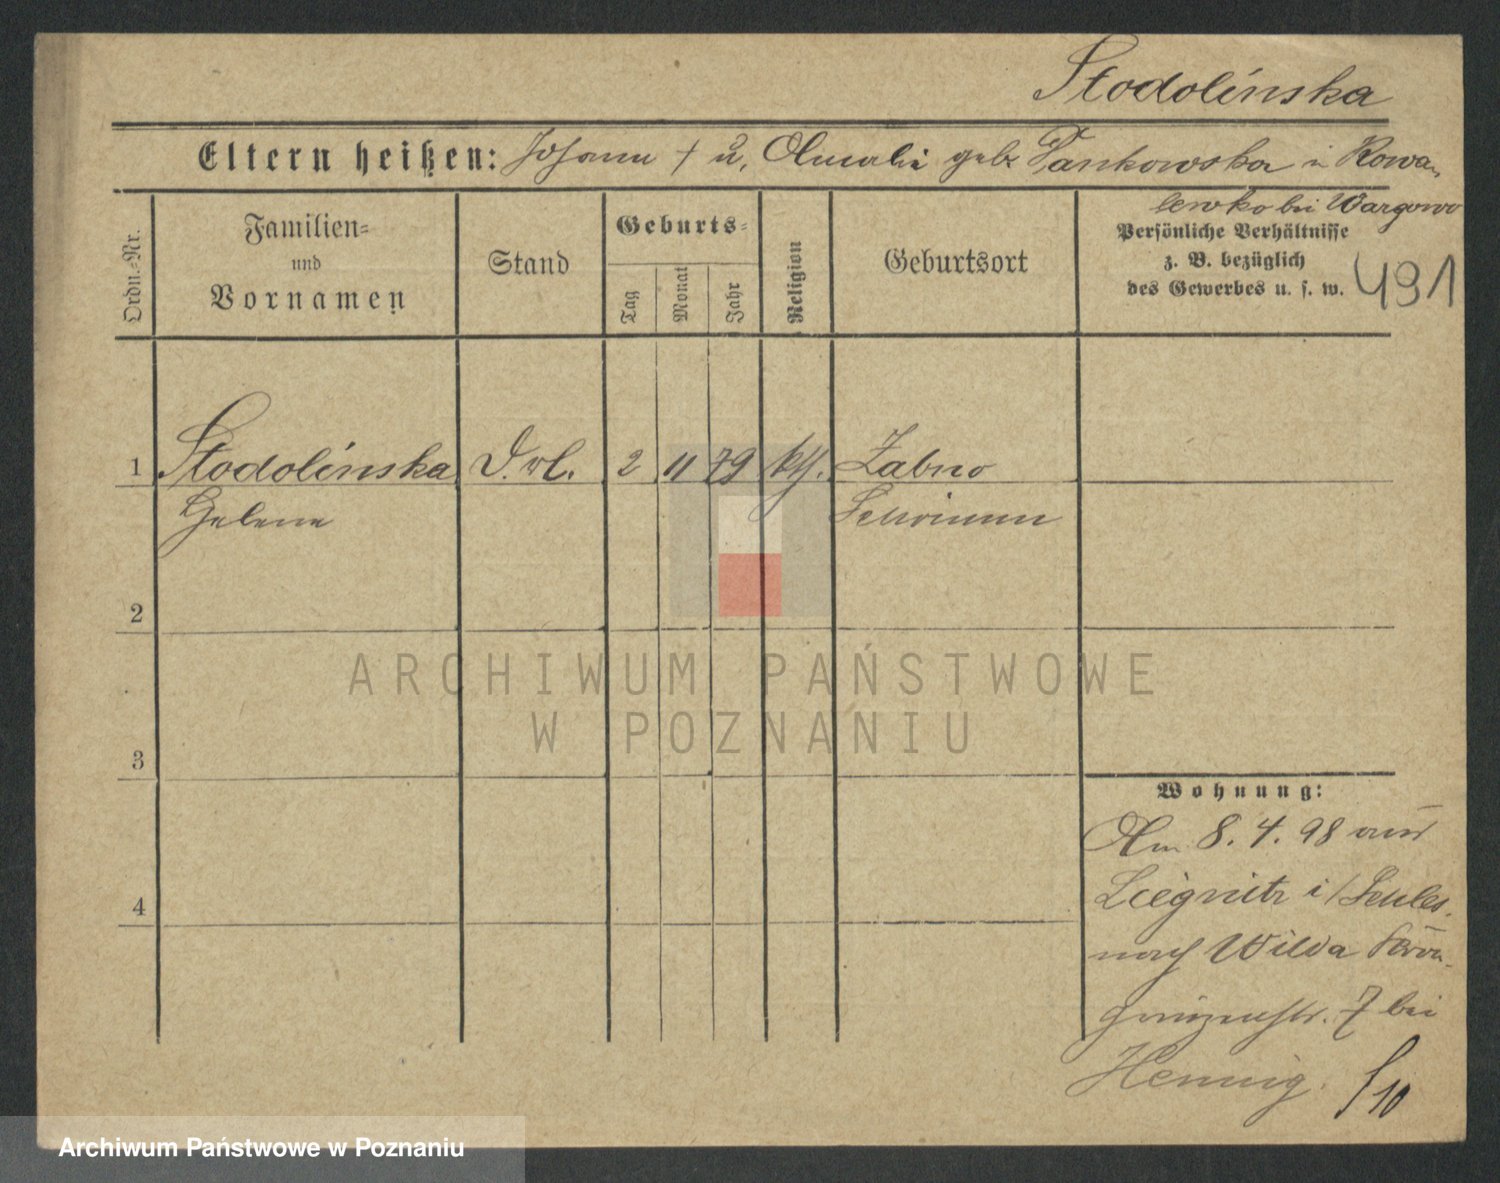 Stodolinska
Eltern heißen: Johann † u. Amalie geb. Pankowska in Rowa-
lewko bei Wargowo
Ordn.-Nr.
Familien-
und
Vornamen
Stand
Geburts-
Tag
Monat
Jahr
Religion
Geburtsort
Persönliche Verhältnisse
z. B. bezüglich
des Gewerbes u. s. w.
491
1 Stodolinska 2 11 79 kth. Zabno
Helene Schrimm
2
3
4
ARCHIWUM PAŃSTWOWE
W POZNANIU
Wohnung:
Am 8. 4. 98 aus
Liegnitz i/Schles.
nach Wilda Kron-
prinzenstr. 7 bei
Hennig.
Archiwum Państwowe w Poznaniu